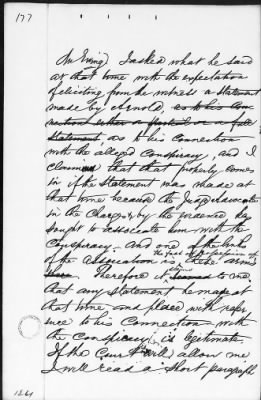 177
Mr Ewing) I asked what he said
at that time with the expectation
of eliciting from the witness a statement
made by Arnold, as to his con
nection either a partial or a full
statement as to his connection
with the alleged conspiracy, and I
claimed that that properly comes
in if the statement was made at
that time because the Judge Advocate
in the Charge & by the evidence has
sought to associate him with the
conspiracy. And one of the
of the association is the fact of these arms
there. Therefore it seems to me
that any statement he made at
that time and place with refer
ence to his connection with
the conspiracy is legitimate.
If the Court will allow me
I will read a short paragraph